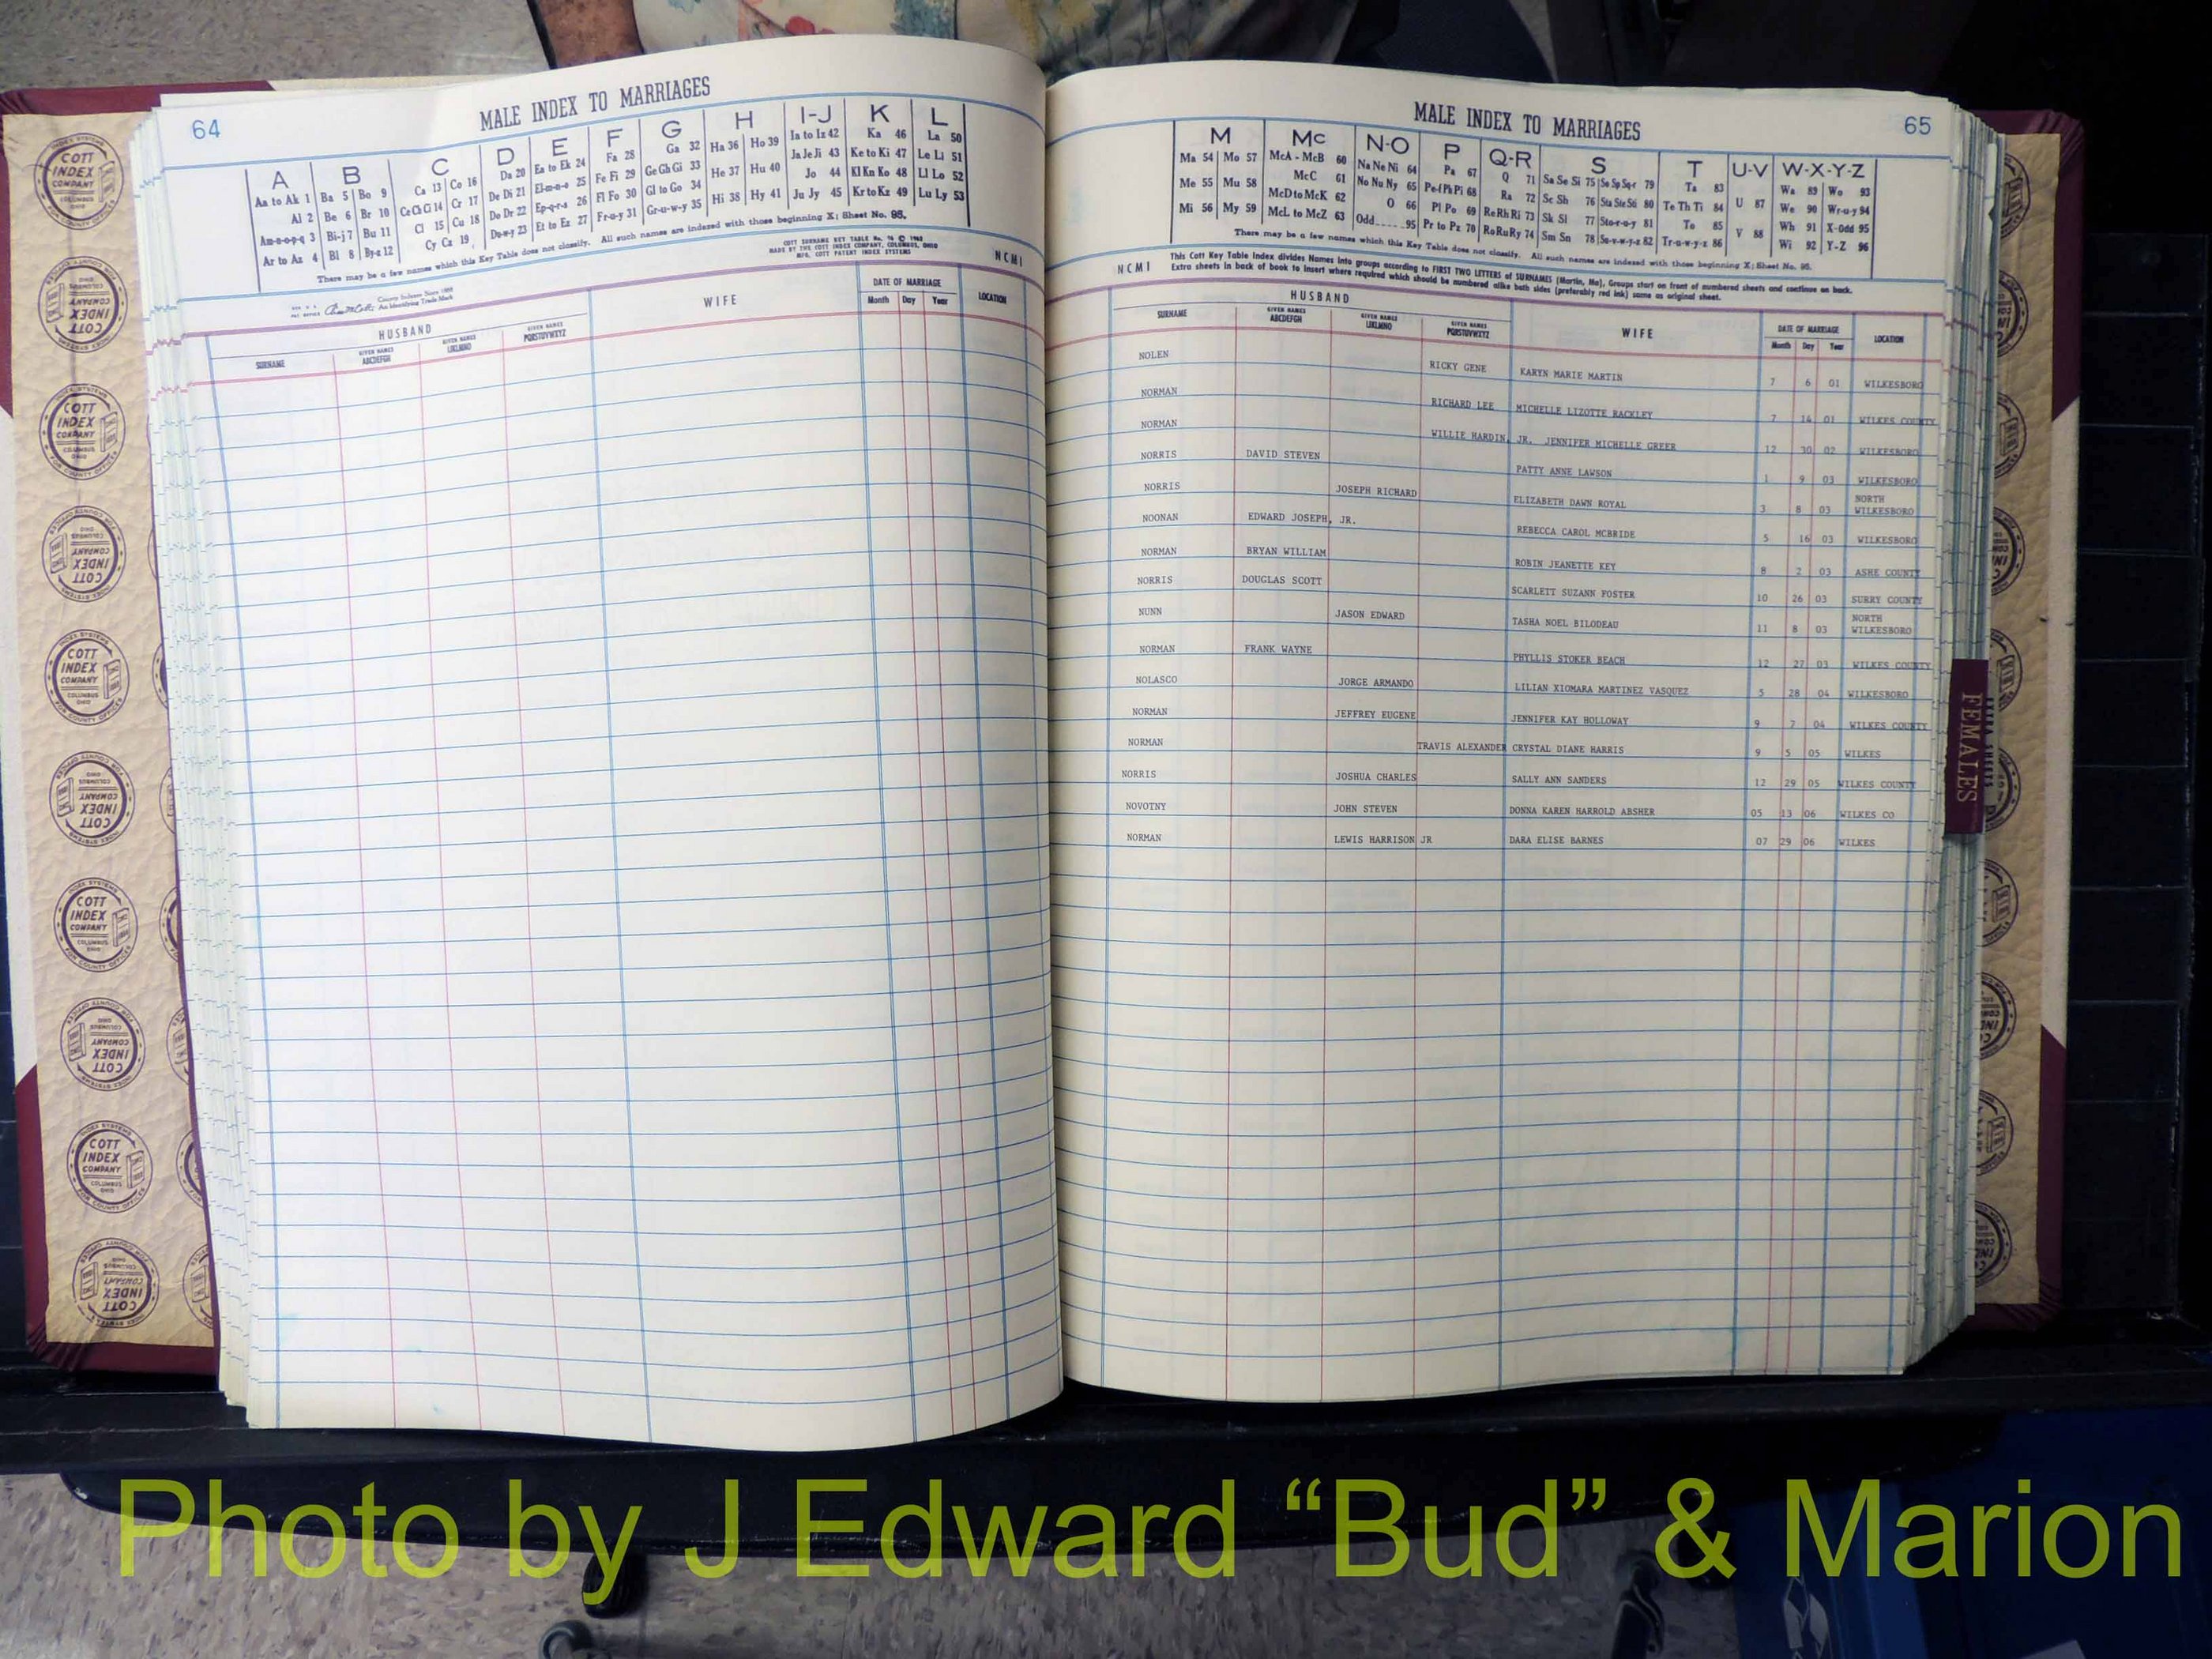 64
MALE INDEX TO MARRIAGES
A B C D E F G H I-J K L
Aa to Ak 1 Ba 5 Bo 9 Ca 13 Co 16 Da 20 Ea to Ek 24 Fa 28 Ga 32 Ha 36 Ho 39 Ia to Iz 42 Ka 46 La 50
Al 2 Be 6 Br 10 Ce Ch Ci 14 Cr 17 De Di 21 El-m-n-o 25 Fe Fi 29 Ge Gh Gi 33 He 37 Hu 40 Ja Je Ji 43 Ke to Ki 47 Le Li 51
Am-n-o-p-q 3 Bi-j 7 Bu 11 Cl 15 Cu 18 Do Dr 22 Ep-q-r-s 26 Fl Fo 30 Gl to Go 34 Hi 38 Hy 41 Jo 44 Kl Kn Ko 48 Ll Lo 52
Ar to Az 4 Bl 8 By-z 12 Cy Cz 19 Du-w-y 23 Et to Ez 27 Fr-u-y 31 Gr-u-w-y 35 Ju Jy 45 Kr to Kz 49 Lu Ly 53
There may be a few names which this Key Table does not classify. All such names are indexed with those beginning X; Sheet No. 95.
COTT SURNAME KEY TABLE
MADE BY THE COTT INDEX COMPANY, COLUMBUS, OHIO
MFG. COTT PATENT INDEX SYSTEMS
NCMI
County Indexes Since 1888
An Identifying Trade Mark
HUSBAND WIFE DATE OF MARRIAGE LOCATION
SURNAME GIVEN NAMES ABCDEFGH GIVEN NAMES IJKLMNO GIVEN NAMES PQRSTUVWXYZ Month Day Year
65
MALE INDEX TO MARRIAGES
M Mc N-O P Q-R S T U-V W-X-Y-Z
Ma 54 Mo 57 McA - McB 60 Na Ne Ni 64 Pa 67 Q 71 Sa Se Si 75 Se Sp Sq-r 79 Ta 83 U 87 Wa 89 Wo 93
Me 55 Mu 58 McC 61 No Nu Ny 65 Pe-f Ph Pi 68 Ra 72 Sc Sh 76 Sta Ste Sti 80 Te Th Ti 84 V 88 We 90 Wr-u-y 94
Mi 56 My 59 McD to McK 62 O 66 Pl Po 69 Re Rh Ri 73 Sk Sl 77 Sto-r-u-y 81 To 85 Wh 91 X-Odd 95
McL to McZ 63 Odd 95 Pr to Pz 70 Ro Ru Ry 74 Sm Sn 78 Su-v-w-y-z 82 Tr-u-w-y-z 86 Wi 92 Y-Z 96
There may be a few names which this Key Table does not classify. All such names are indexed with those beginning X; Sheet No. 95.
NCMI
This Cott Key Table Index divides Names into groups according to FIRST TWO LETTERS of SURNAMES (Martin, Ma), Groups start on front of numbered sheets and continue on back.
Extra sheets in back of book to insert where required which should be numbered alike both sides (preferably red ink) same as original sheet.
HUSBAND WIFE DATE OF MARRIAGE LOCATION
SURNAME GIVEN NAMES ABCDEFGH GIVEN NAMES IJKLMNO GIVEN NAMES PQRSTUVWXYZ Month Day Year
NOLEN RICKY GENE KARYN MARIE MARTIN 7 6 01 WILKESBORO
NORMAN RICHARD LEE MICHELLE LIZOTTE RACKLEY 7 14 01 WILKES COUNTY
NORMAN WILLIE HARDIN, JR. JENNIFER MICHELLE GREER 12 30 02 WILKESBORO
NORRIS DAVID STEVEN PATTY ANNE LAWSON 1 9 03 WILKESBORO
NORRIS JOSEPH RICHARD ELIZABETH DAWN ROYAL 3 8 03 NORTH WILKESBORO
NOONAN EDWARD JOSEPH, JR. REBECCA CAROL MCBRIDE 5 16 03 WILKESBORO
NORMAN BRYAN WILLIAM ROBIN JEANETTE KEY 8 2 03 ASHE COUNTY
NORRIS DOUGLAS SCOTT SCARLETT SUZANN FOSTER 10 26 03 SURRY COUNTY
NUNN JASON EDWARD TASHA NOEL BILODEAU 11 8 03 NORTH WILKESBORO
NORMAN FRANK WAYNE PHYLLIS STOKER BEACH 12 27 03 WILKES COUNTY
NOLASCO JORGE ARMANDO LILIAN XIOMARA MARTINEZ VASQUEZ 5 28 04 WILKESBORO
NORMAN JEFFREY EUGENE JENNIFER KAY HOLLOWAY 9 7 04 WILKES COUNTY
NORMAN TRAVIS ALEXANDER CRYSTAL DIANE HARRIS 9 5 05 WILKES
NORRIS JOSHUA CHARLES SALLY ANN SANDERS 12 29 05 WILKES COUNTY
NOVOTNY JOHN STEVEN DONNA KAREN HARROLD ABSHER 05 13 06 WILKES CO
NORMAN LEWIS HARRISON JR DARA ELISE BARNES 07 29 06 WILKES
FEMALES
COTT INDEX COMPANY
COLUMBUS OHIO
INDEX SYSTEMS
FOR COUNTY OFFICES
Photo by J Edward “Bud” & Marion